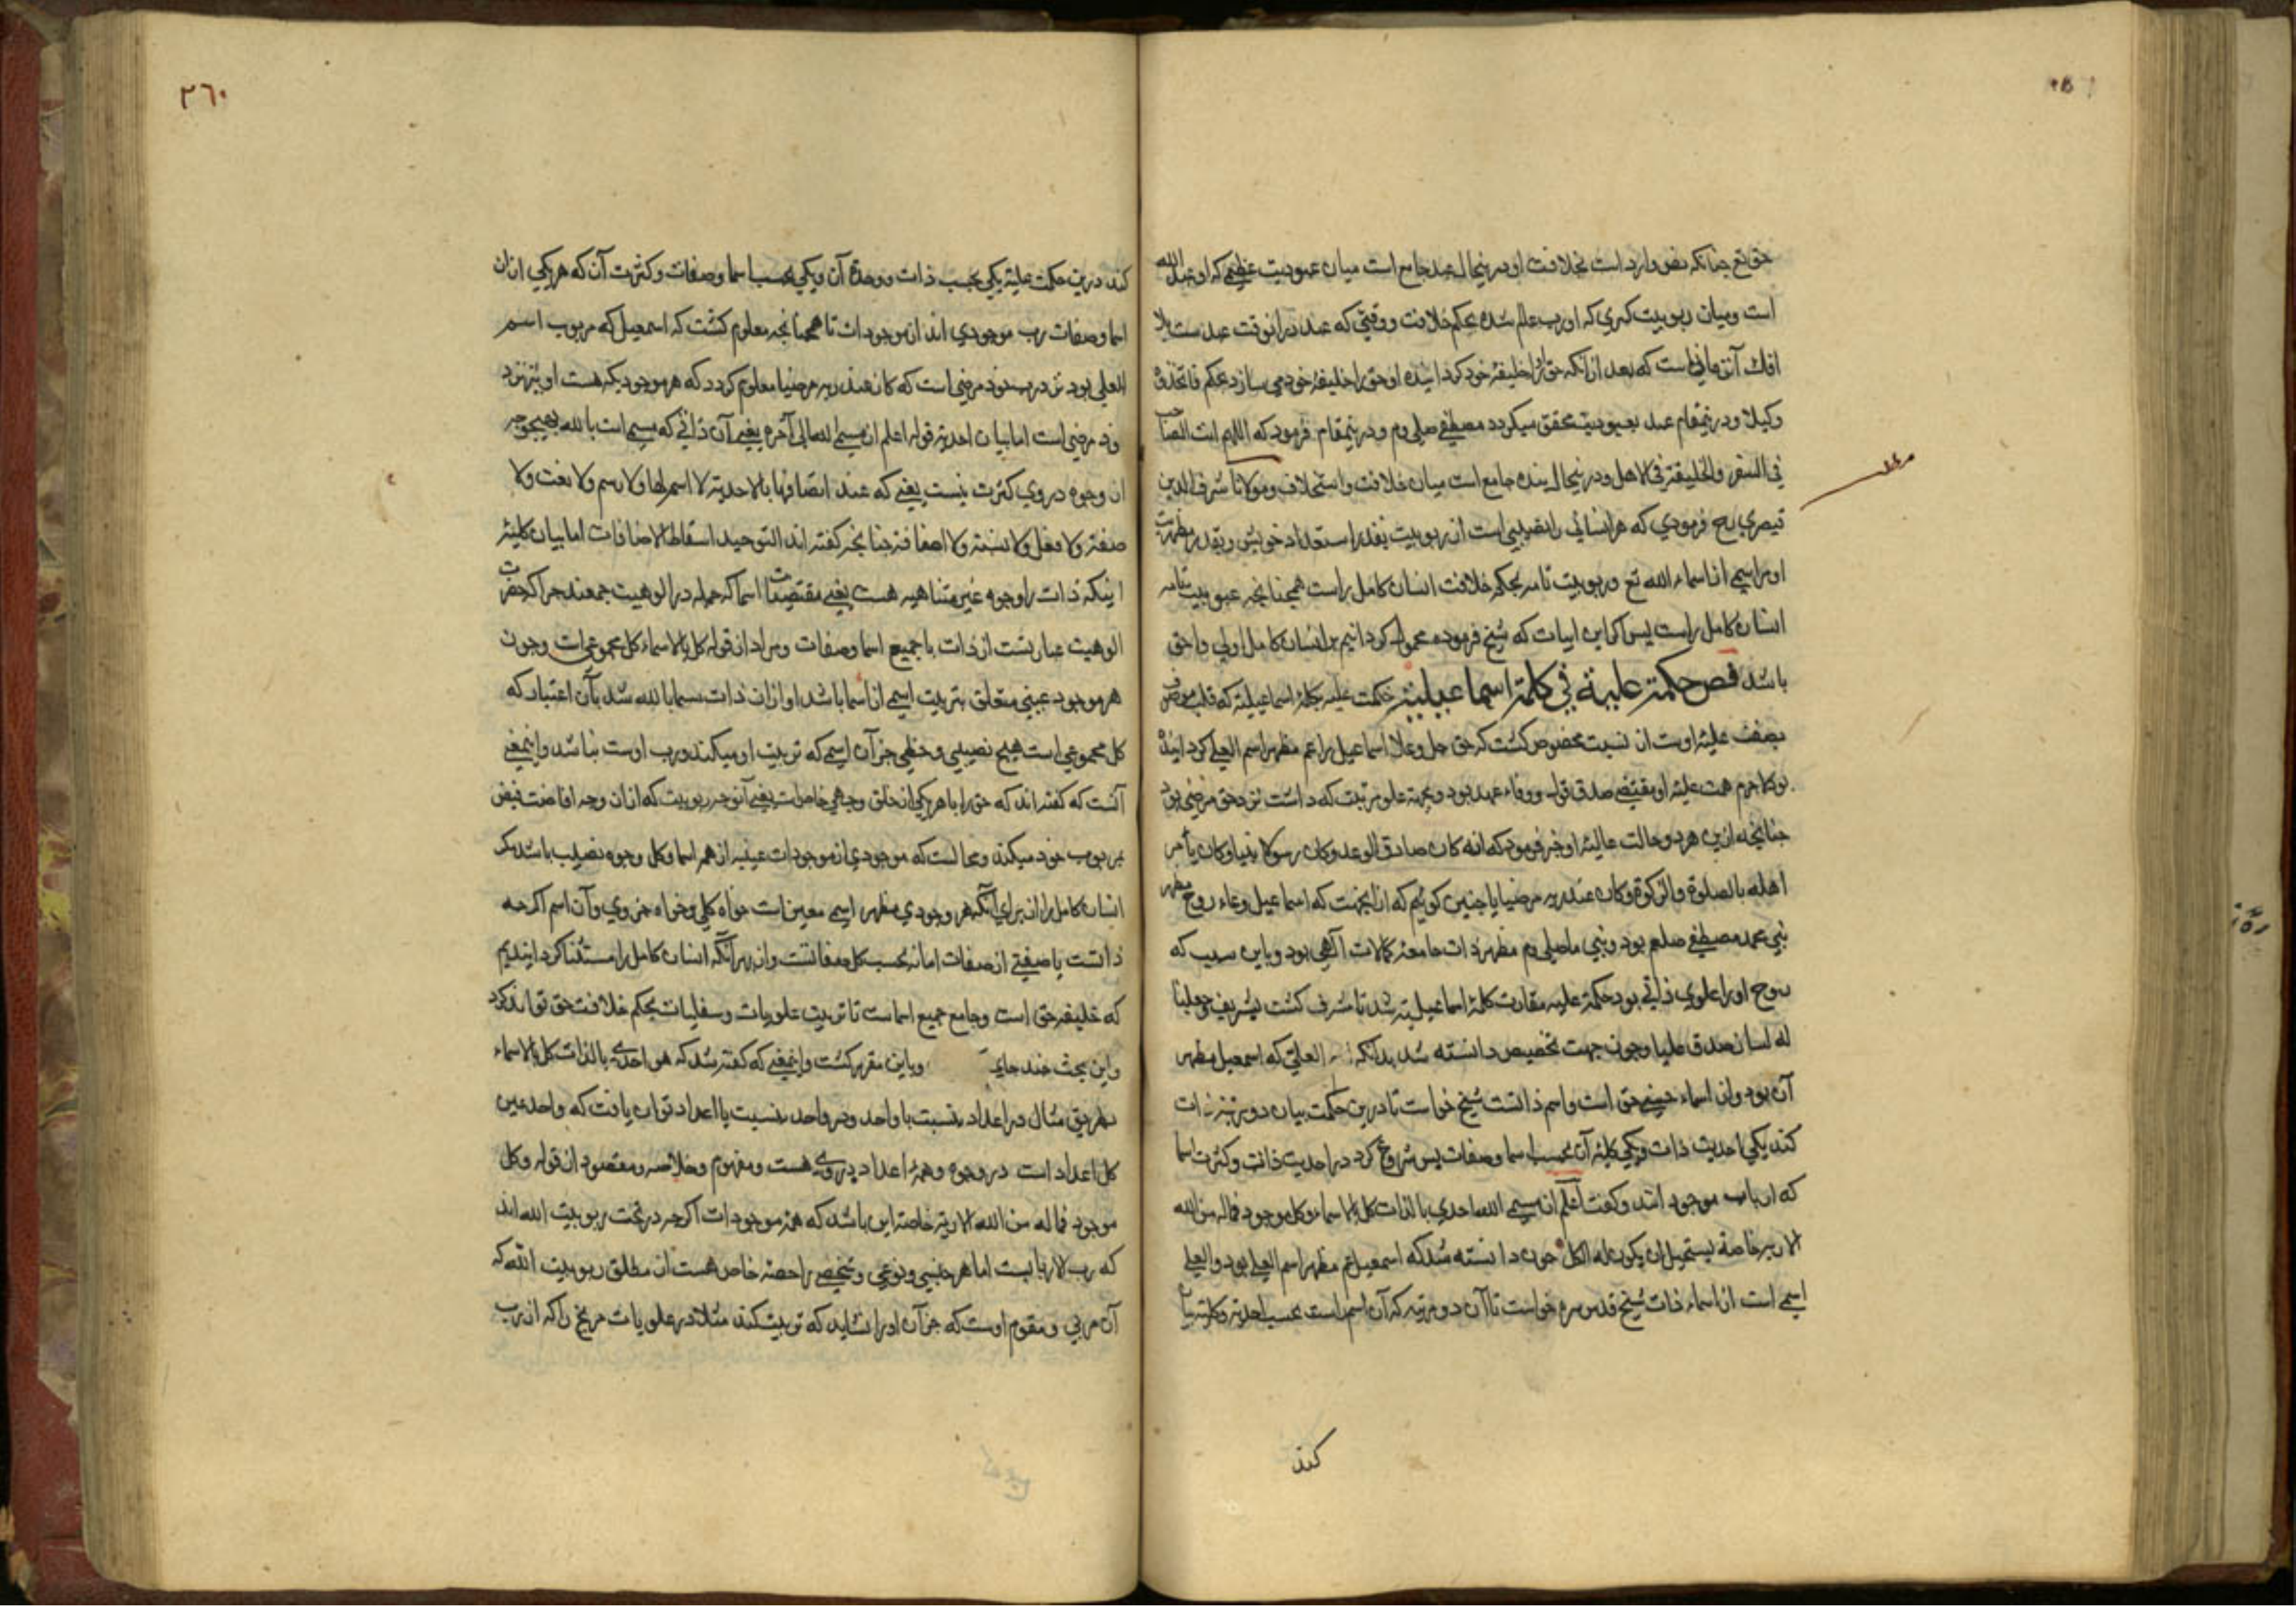 حق تع چنانکه نص وارد است بخلافت او درینحال عبد جامع است میان عبودیت عظمی که او عبد الله
است ومیان ربوبیت کبری که او رب عالم شده بحکم خلافت ووقتی که عبد درانوقت عبدست بلا
افك آنزمانی است که بعد ازانکه حق اورا خلیفهٔ خود کردانیده او حق را خلیفهٔ خود می سازد بحکم فاتخذه
وکیلا ودرینمقام عبد بعبودیت محقق میکردد مصطفی صلی وم ودرینمقام فرمود که اللهم انت الصاحب
فی السفر والخلیفة فی الاهل ودرینحال بنده جامع است میان خلافت واستخلاف ومولانا شرف الدین
قیصری رح فرمودی که هر انسانی را نصیبی است از ربوبیت بقدر استعداد خویش وبقدر مظهریت
او مر اسمی از اسماء الله تع وربوبیت تامه بحکم خلافت انسان کامل راست همچنانچه عبودیت تامه
انسان کامل راست پس اکر این ابیات که شیخ فرموده محمول کردانیم بر انسان کامل اولی واحق
باشد فص حکمة علیة فی کلمة اسماعیلیة حکمت علیه بکلمهٔ اسماعیلیة که قلب موصوف
بصفت علیهٔ اوست از نسبت مخصوص کشت که حق جل وعلا اسماعیل را عم مظهر اسم العلی کردانیده
بود لاجرم همت علیهٔ او مقتضی صدق قول ووفاء عهد بود وبجهة علو مرتبت که داشت نزد حق مرضی بود
چنانچه ازین هر دو حالت عالیهٔ او خبر فرمود که انه کان صادق الوعد وکان رسولا نبیا وکان یأمر
اهله بالصلوة والزکوة وکان عند ربه مرضیا یا چنین کوئیم که ازانجهت که اسماعیل وعاء روح مطهر
نبی محمد مصطفی صلعم بود ونبی ما صلی وم مظهر ذات جامعهٔ کمالات آلهی بود وباین سبب که
روح او را علوی ذاتی بود حکمة علیه مقارن کلمهٔ اسماعیلیة شد تا مشرف کشت بتشریف وجعلنا
له لسان صدق علیا وچون جهت تخصیص دانسته شد بدانکه العلی که اسمعیل مظهر
آن بود واز اسماء حسنی حق است واسم ذاتست شیخ خواست تا درین حکمت بیان دو مرتبهٔ ذات
کند یکی احدیت ذات ویکی کلیهٔ آن بحسب اسما وصفات پس شروع کرد در احدیت ذات وکثرت اسما
که ارباب موجود اتند وکفت اعلم ان مسمی الله احدی بالذات کل بالاسماء وکل موجود فماله من الله
الا ربه خاصة یستحیل ان یکون له الکل چون دانسته شد که اسمعیل عم مظهر اسم العلی بود والعلی
اسمی است از اسماء ذات شیخ قدس سره خواست تا آن دو مرتبه که آن اسم راست بحسب احدیة وکلیة بیان
کند
۳٦۰
کند درین حکمت علیهٔ یکی بحسب ذات ووحدة آن ویکی بحسب اسما وصفات وکثرت آن که هر یکی ازان
اسما وصفات رب موجودی اند از موجودات تا همچنانچه معلوم کشت که اسمعیل که مربوب اسم
العلی بود نزد رب خود مرضی است که کان عند ربه مرضیا معلوم کردد که هر موجودیکه هست او نیز نزد
خود مرضی است اما بیان احدیة قوله اعلم ان مسمی الله الی آخره یعنی آن ذاتی که مسمی است بالله بهیچ وجه
از وجوه در وی کثرت نیست یعنی که عند اتصافها بالاحدیة لا اسم لها ولا رسم ولا نعت ولا
صفة ولا فعل ولا نسبة ولا اضافة چنانچه کفته اند التوحید اسقاط الاضافات اما بیان کلیهٔ
اینکه ذات را وجوه غیر متناهیه هست یعنی مقتضیات اسما که جمله در الوهیت جمعند چرا که حضرت
الوهیت عبارتست از ذات با جمیع اسما وصفات ومراد از قوله کل بالاسماء کل مجموعیست وچون
هر موجود عینی متعلق بتربیت اسمی از اسما باشد او ازان ذات مسما بالله شد بآن اعتبار که
کل مجموعی است هیچ نصیبی وحظی جز آن اسمی که تربیت او میکند ورب اوست نباشد واینمعنی
آنست که کفته اند که حق را با هر یکی از خلق وجهی خاصست یعنی آنوجه ربوبیت که ازان وجه افاضت فیض
بر مربوب خود میکند ومحالست که موجودی از موجودات عینیه از همه اسما وکل وجوه نصیب باشد مکر
انسان کامل را از برای آنکه هر وجودی مظهر اسمی معین است خواه کلی وخواه جزوی وآن اسم اکرچه
ذاتست یا صفتی از صفات اما نه بحسب کل صفاتست واز بهر آنکه انسان کامل را مستثنا کردانیدیم
که خلیفهٔ حق است وجامع جمیع اسماست تا تربیت علویات وسفلیات بحکم خلافت حق تواند کرد
واین بحث چند جای وباین مقرر کشت واینمعنی که کفته شد که هو احدی بالذات کل بالاسماء
بطریق مثال در اعداد بنسبت با واحد ودر واحد بنسبت با اعداد توان یافت که واحد عین
کل اعداد است در وجوه وهمهٔ اعداد در وی هست ومفهوم وخلاصه ومقصود از قوله وکل
موجود فماله من الله الا ربه خاصة این باشد که همهٔ موجودات اکرچه در تحت ربوبیت الله اند
که رب الاربابست اما هر جنسی ونوعی وشخصی را حصهٔ خاص هست از مطلق ربوبیت الله که
آن مربی ومقوم اوست که جز آن او را نشاید که تربیت کند مثلا در علویات مریخ را که از رب